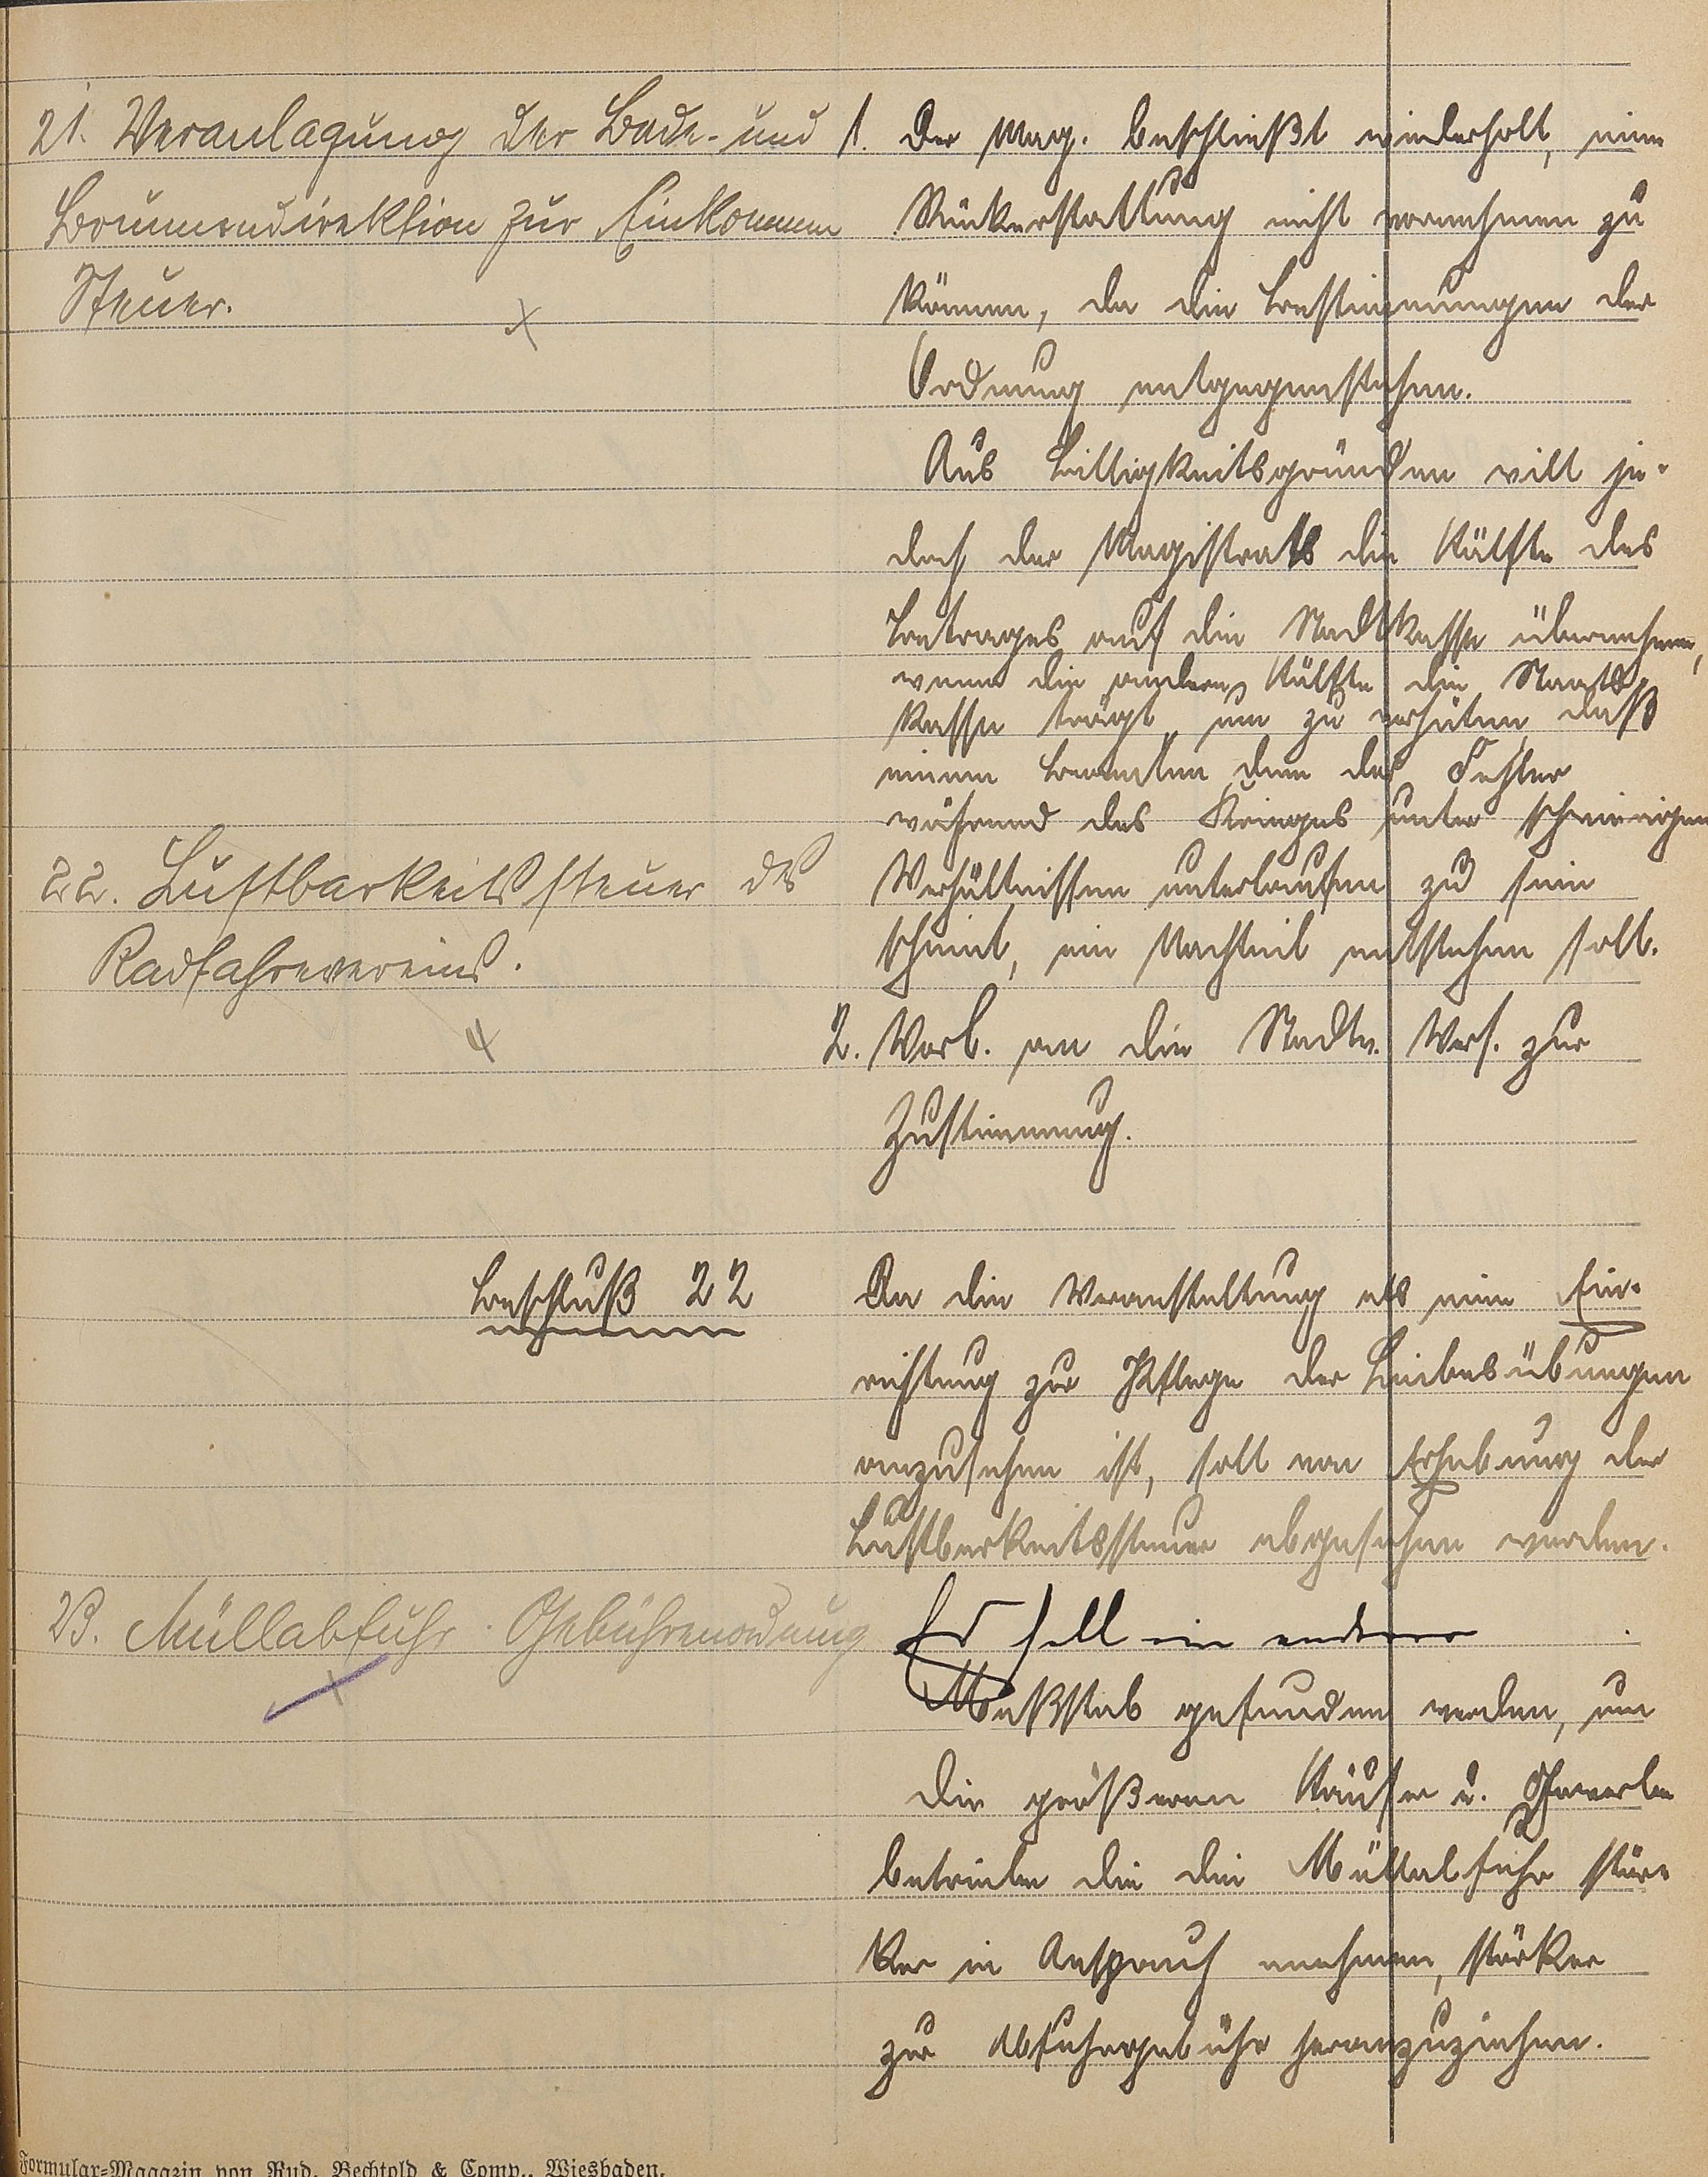 21. Veranlagung der Bade- und
Brunnendirektion zur Einkommen
Steuer.
1. Der Mag. beschließt wiederholt, eine
Rückerstattung nicht vornehmen zu
können, da die Bestimmungen der
Ordnung entgegenstehen.
Aus Billigkeitsgründen will je-
doch der Magistrat die Hälfte des
Betrages auf die Stadtkasse übernehmen,
wenn die andere Hälfte die Staats
kasse trägt, um zu verhüten, daß
einem Beamten, dem der Fehler
während des Krieges unter schwierigen
Verhältnissen unterlaufen zu sein
scheint, ein Nachteil entstehen soll.
2. Vorl. an die Stadtv. Vers. zur
Zustimmung.
22. Lustbarkeitssteuer des
Radfahrervereins.
Beschluß 22
Da die Veranstaltung als eine Ein-
richtung zur Pflege der Leibesübungen
anzusehen ist, soll von Erhebung der
Lustbarkeitssteuer abgesehen werden.
23. Müllabfuhr-Gebührenordnung
Es soll ein anderer
Maßstab gefunden werden, um
die größeren Häuser u. Gewerbe
betriebe die die Müllabfuhr stär-
ker in Anspruch nehmen, stärker
zur Abfuhrgebühr heranzuziehen.
Formular-Magazin von Rud. Bechtold & Comp., Wiesbaden.